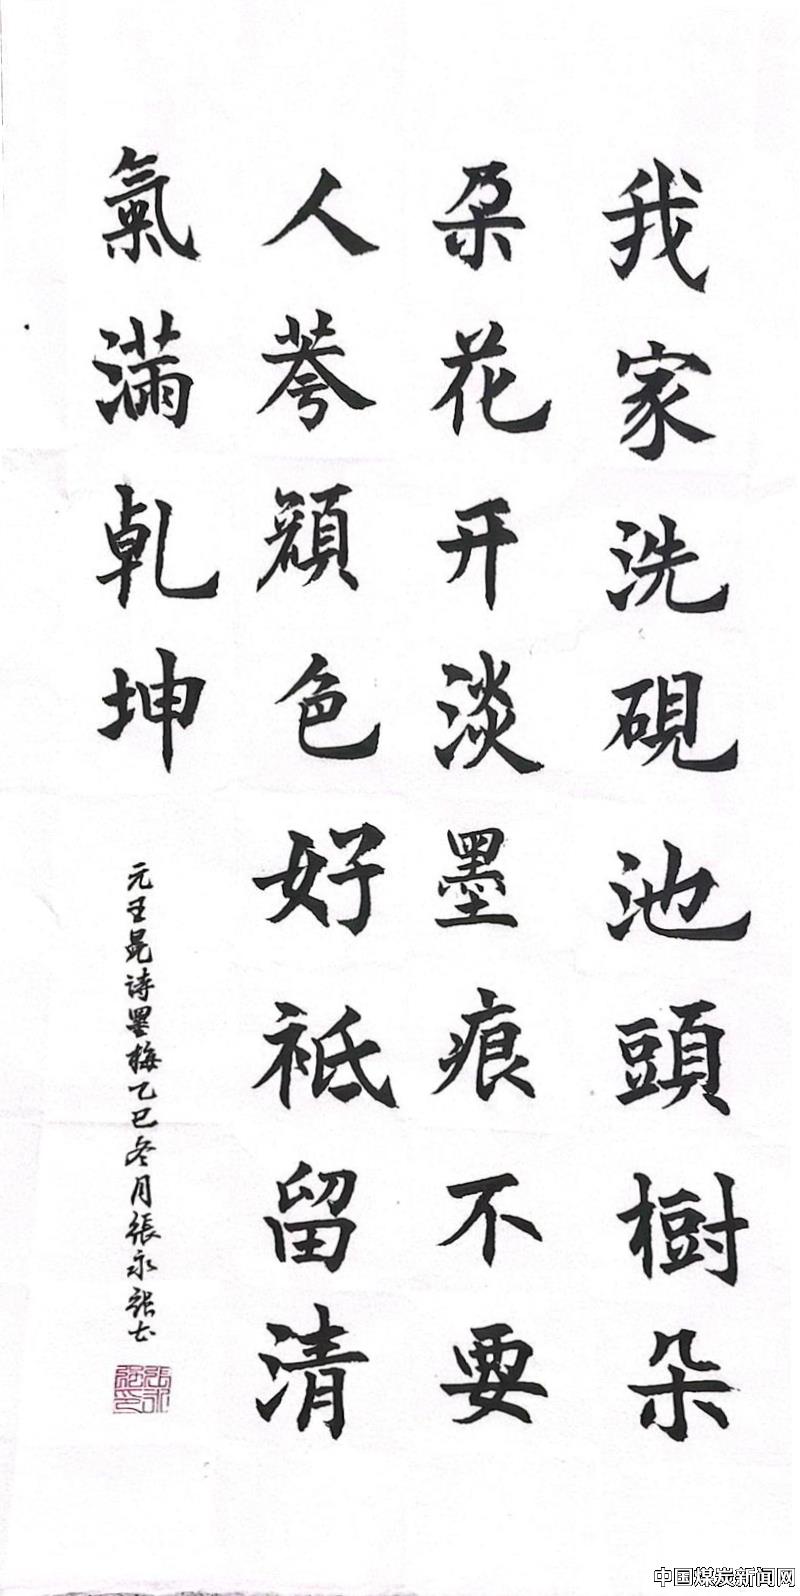 我家洗硯池頭樹朵
朵花开淡墨痕不要
人荂顔色好祗留清
氣滿乾坤
元王冕诗墨梅乙巳冬月張永强书
張永強印
中国煤炭新闻网